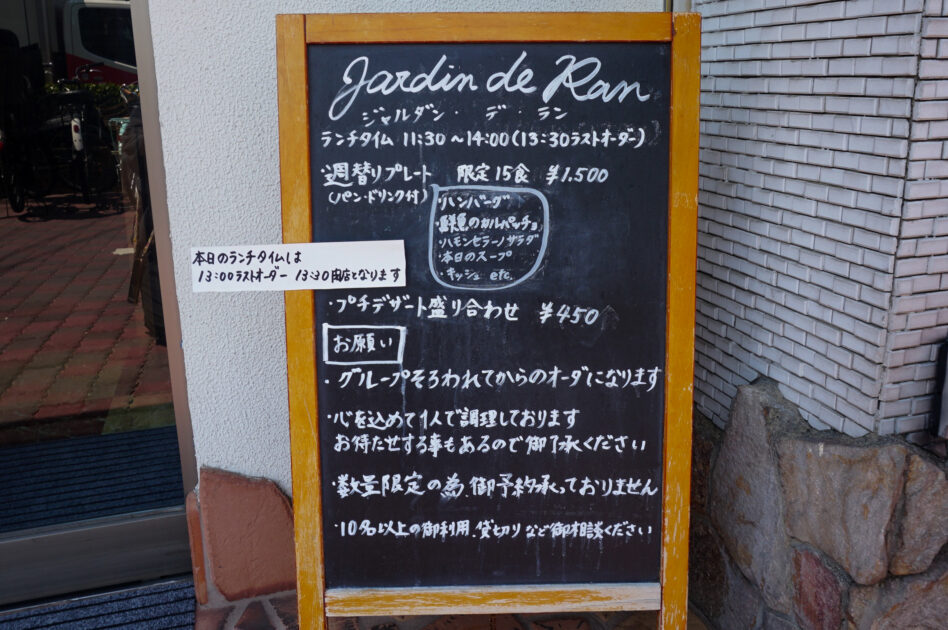 Jardin de Ran
ジャルダン・デ・ラン
ランチタイム 11:30 ～14:00(13:30ラストオーダー)
・週替りプレート 限定15食 ¥1.500
(パン・ドリンク付)
・ハンバーグ
・鮮魚のカルパッチョ
・ハモンセラーノサラダ
・本日のスープ
・キッシュ etc.
本日のランチタイムは
13:00ラストオーダー 13:30閉店となります
・プチデザート盛り合わせ ¥450
お願い
・グループそろわれてからのオーダになります
・心を込めて1人で調理しております
お待たせする事もあるので御了承ください
・数量限定の為、御予約承っておりません
・10名以上の御利用、貸切りなど御相談ください